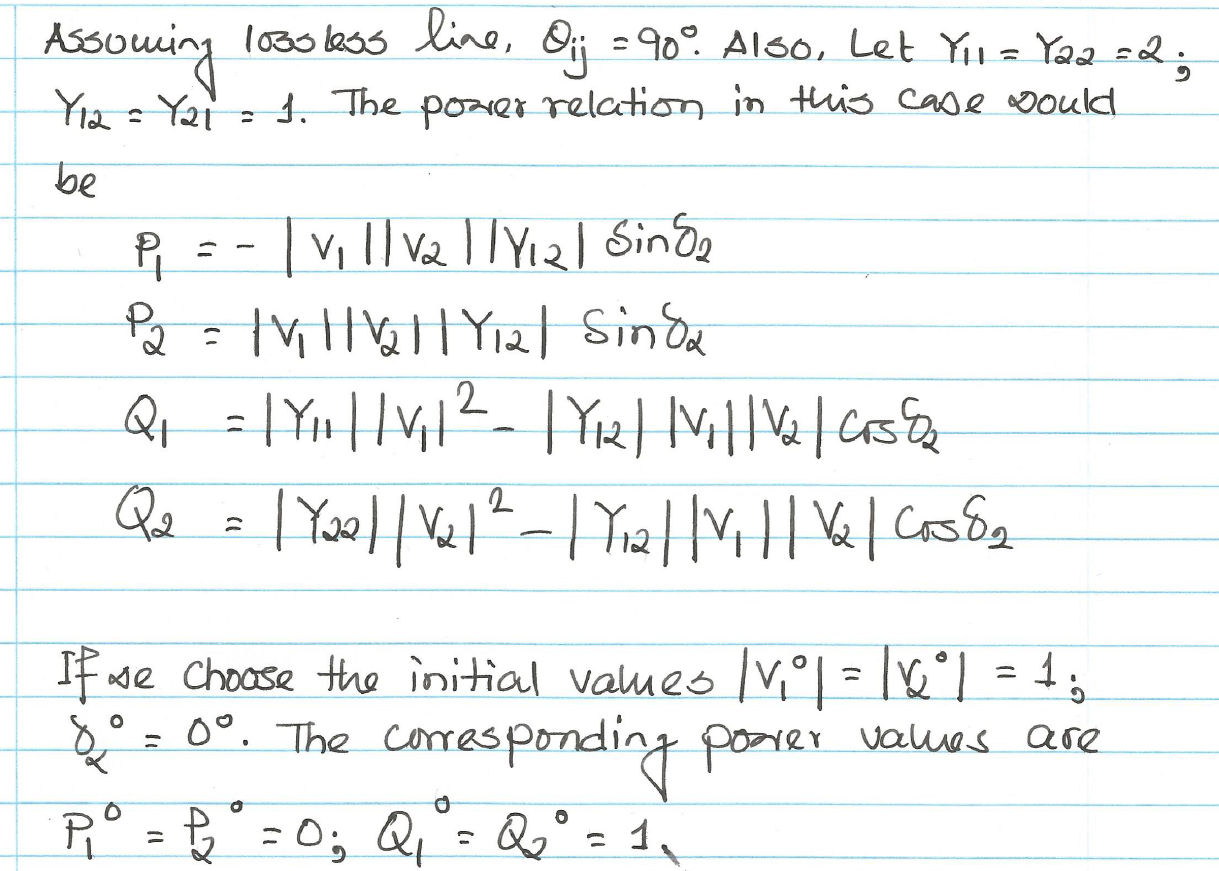 Assuming lossless line, θij = 90°. Also, Let Y11 = Y22 = 2;
Y12 = Y21 = 1. The power relation in this case would
be
P1 = - |V1||V2||Y12| Sin δ2
P2 = |V1||V2||Y12| Sin δ2
Q1 = |Y11||V1|² - |Y12||V1||V2| Cos δ2
Q2 = |Y22||V2|² - |Y12||V1||V2| Cos δ2
If we choose the initial values |V1°| = |V2°| = 1;
δ2° = 0°. The corresponding power values are
P1° = P2° = 0; Q1° = Q2° = 1.